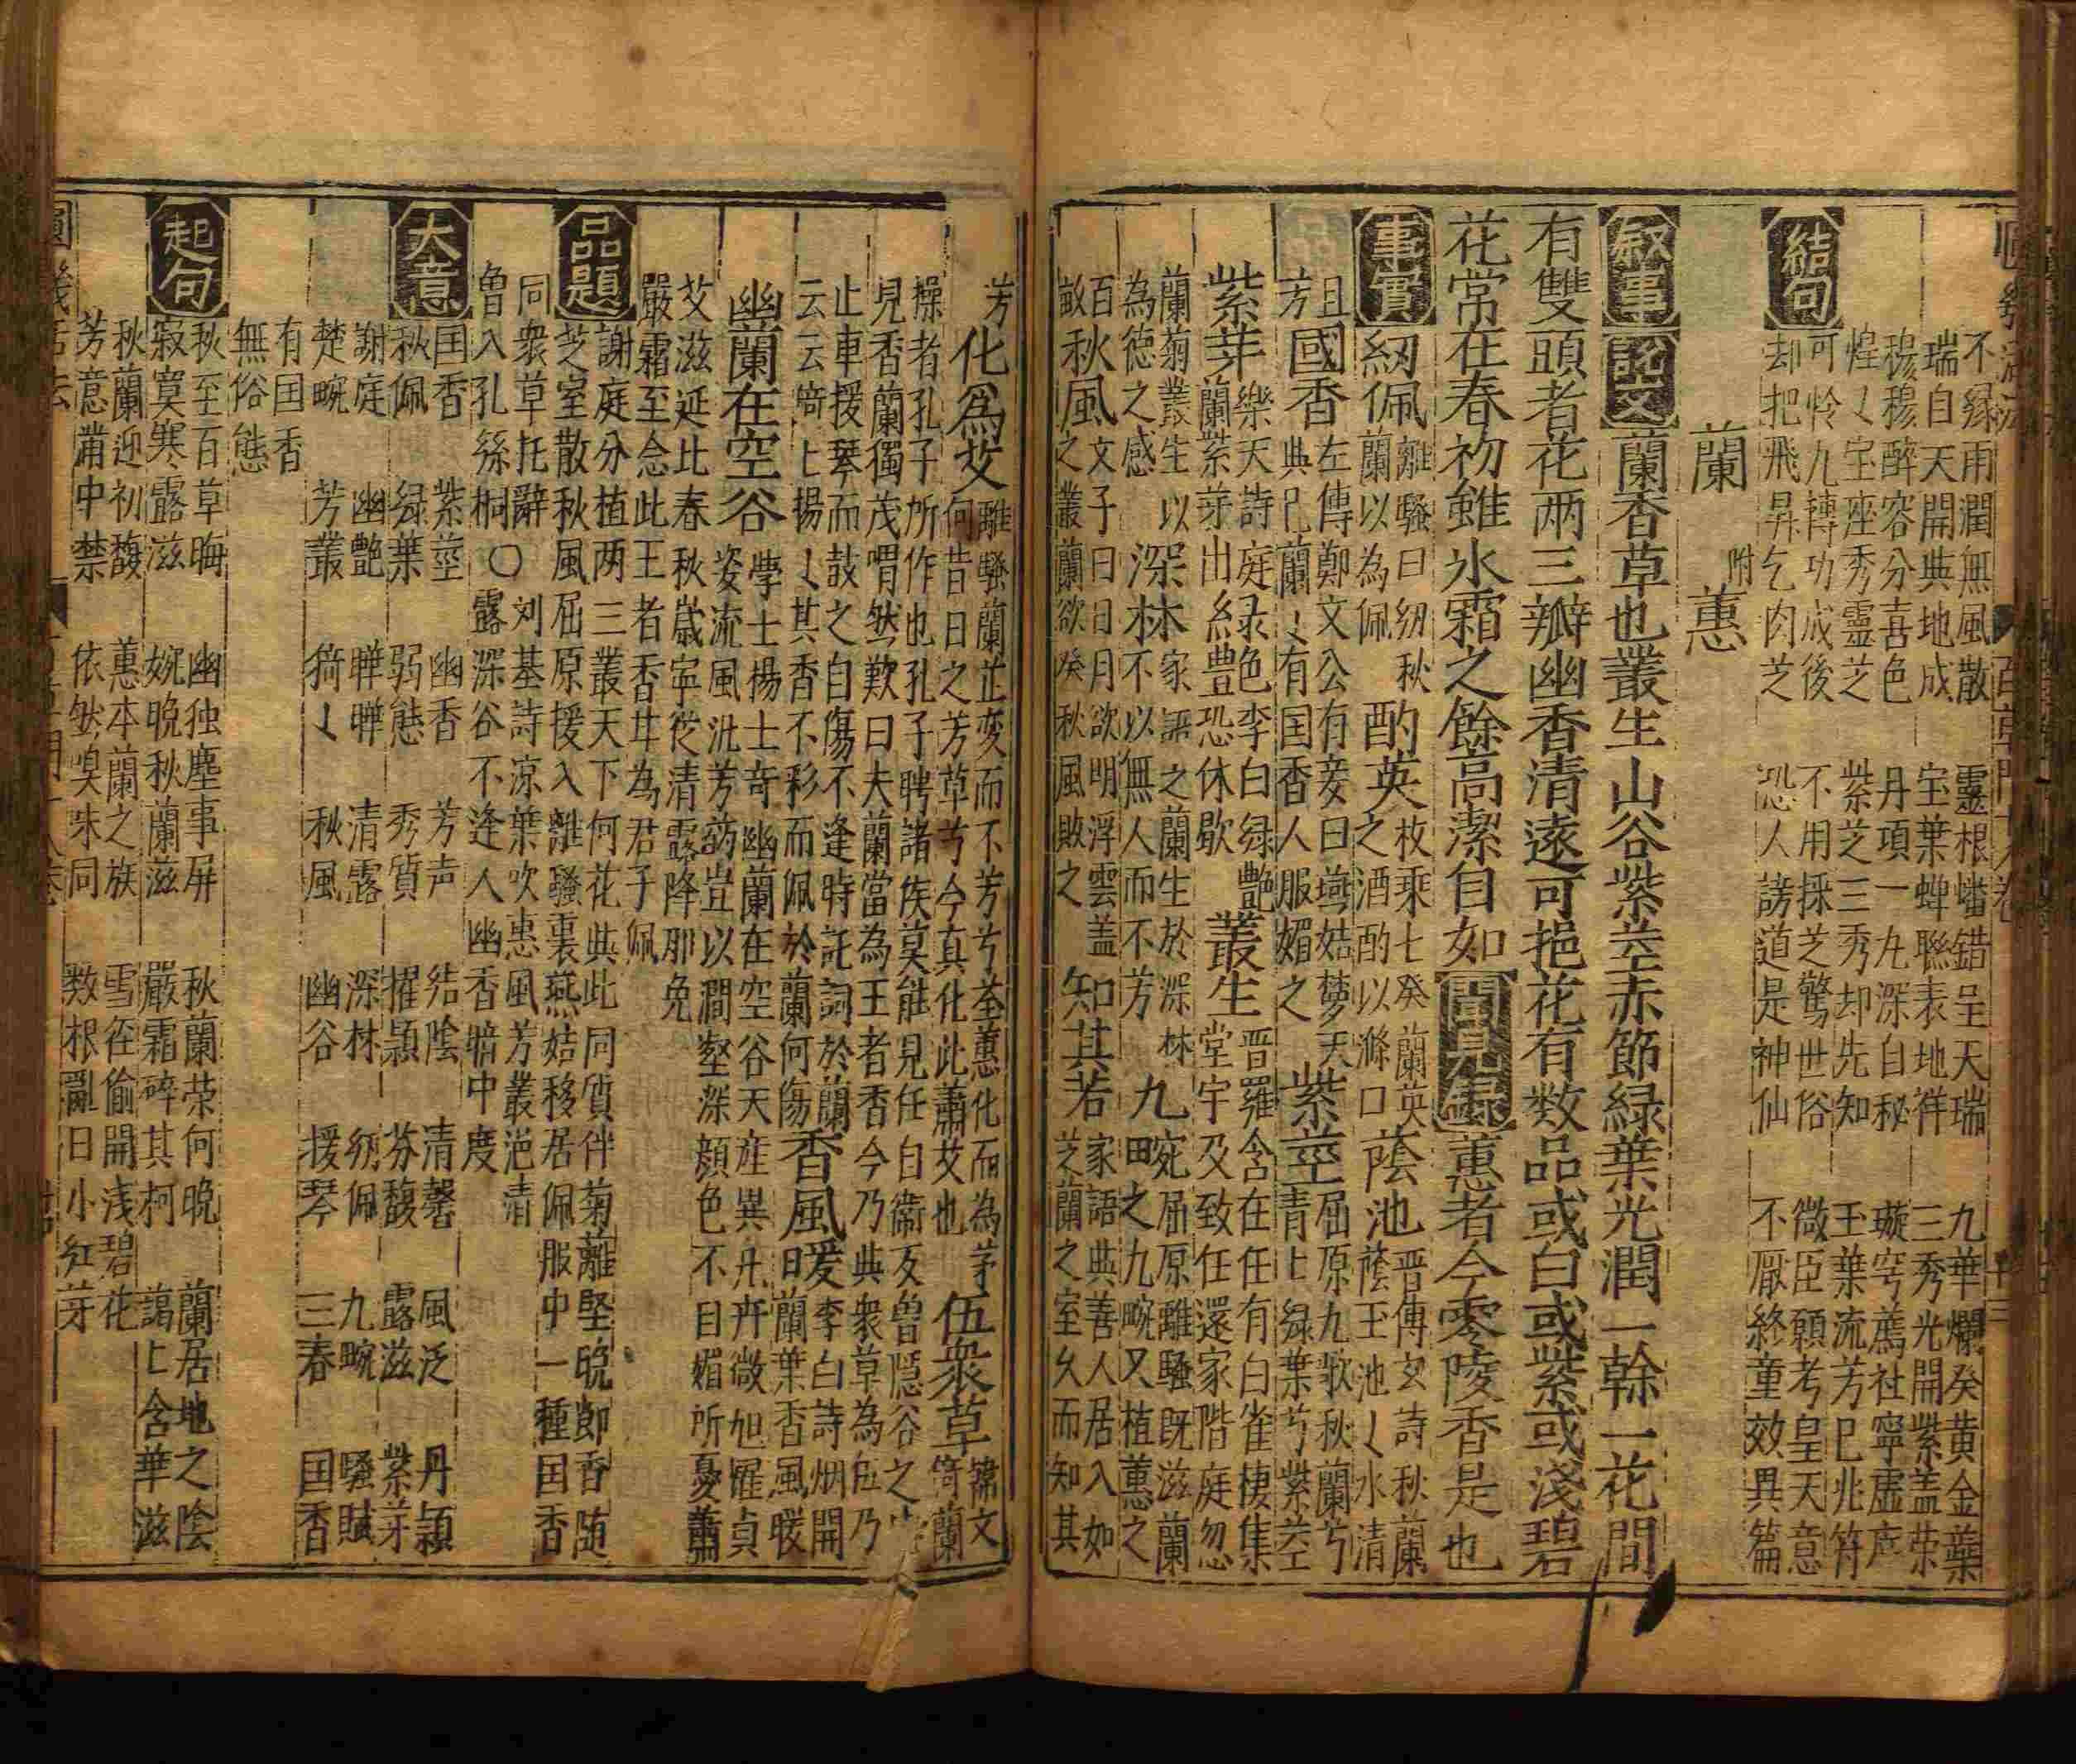 不緣雨潤無風散 靈根蟠錯呈天瑞 九華爛癸黄金蘂
瑞自天開典地成 宝葉蟬聯表地祥 三秀光開紫盖荣
穆穆醉容分喜色 丹項一九深白秘 璇穹薦社寧虛應
煌〻宝座秀靈芝 紫芝三秀却先知 玉葉流芳已兆符
結句 可怜九轉功成後 不用採芝驚世俗 微臣願考皇天意
却把飛昇乞肉芝 恐人謗道是神仙 不厭終童效異篇
蘭 附蕙
敘事 説文 蘭香草也叢生山谷紫莖赤節緑葉光潤一幹一花間
有雙頭者花两三瓣幽香清遠可挹花有数品或白或紫或淺碧
花常在春初雖氷霜之餘高潔自如 聞見録 蕙者今零陵香是也
事實 紉佩 離騷曰紉秋蘭以為佩 酌英 枚乘七癸蘭英之酒酌以滌口 蔭池 晋傅玄詩秋蘭蔭玉池〻水清
且芳 國香 左傳鄭文公有妾曰燕姞夢天典己蘭〻有囯香人服媚之 紫莖 屈原九歌秋蘭兮青〻緑葉兮紫莖
紫芽 樂天詩庭緑色李白緑艷蘭紫芽出絲豊恐休歇 叢生 晋羅含在任有白雀棲集堂宇及致任還家階庭忽
蘭菊叢生以為德之感 深林 家語之蘭生於深林不以無人而不芳 九畹 屈原離騷既滋蘭田之九畹又植蕙之
百畝 秋風 文子曰日月欲明浮雲盖之叢蘭欲癸秋風敗之 知其若 家語典善人居入如芝蘭之室久而知其
芳 化爲艾 離騷蘭芷变而不芳兮荃蕙化而為茅何昔日之芳草兮今真化此蕭艾也 伍衆草 儒文猗蘭
操者孔子所作也孔子聘諸侯莫能見任自衞友魯隱谷之中
見香蘭獨茂喟然歎曰夫蘭當為王者香今乃典衆草為伍乃
止車援琴而鼓之自傷不逢時託詞於蘭 香風暖 李白詩烟開
云云猗〻揚〻其香不彩而佩於蘭何傷 日蘭葉香風暖
幽蘭在空谷 學士楊士竒幽蘭在空谷天産異卉卉微旭罹貞
姿流風汎芳韵豈以澗壑深顔色不自媚所憂蕭
艾滋延此春秋歳寜從清露降那免
嚴霜至念此王者香廾為君子佩
品題 謝庭分植两三叢天下何花典此同質伴菊蘺堅晚節香随
芝室散秋風屈原援入離騷裏燕姞移居佩服中一種囯香
同衆草托辭〇刘基詩凉葉吹惠風芳叢浥清
曾入孔絲桐〇露深谷不逢人幽香暗中度
大意 囯香 紫莖 幽香 芳声 结陰 清馨 風泛 丹頴
秋佩 緑葉 弱態 秀質 擢頴 芬馥 露滋 紫芽
謝庭 幽艶 曄曄 清露 深林 紉佩 九畹 騷賦
楚畹 芳叢 猗〻 秋風 幽谷 援琴 三春 囯香
有囯香
無俗態
起句 秋至百草晦 幽独塵事屏 秋蘭荣何晚 蘭居地之陰
寂寞寒露滋 婉晚秋蘭滋 嚴霜碎其柯 藹〻含華滋
秋蘭迎初馥 蕙本蘭之族 雪径偷開浅碧花
芳意滿中禁 依然嗅味同 敎根亂日小紅芽